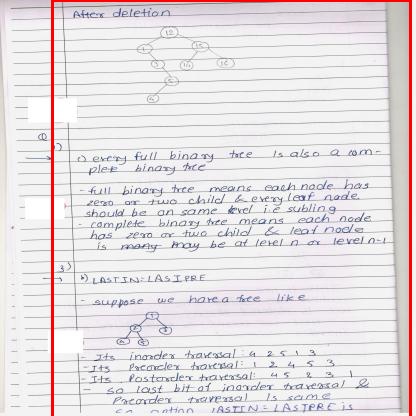 After deletion
12
1 15
3 14 16
5
4
Q
1)
i) every full binary tree is also a com-
plete binary tree
- full binary tree means each node has
zero or two child & every leaf node
should be on same level i.e subling
- complete binary tree means each node
has zero or two child & leaf node
is many may be at level n or level n-1
3)
b) LASTIN=LASTPRE
- suppose we have a tree like
1
2 3
4 5
- Its inorder traversal: 4 2 5 1 3
- Its Preorder traversal: 1 2 4 5 3
- Its Postorder traversal: 4 5 2 3 1
so last bit of inorder traversal &
Preorder traversal is same
so option LASTIN=LASTPRE is